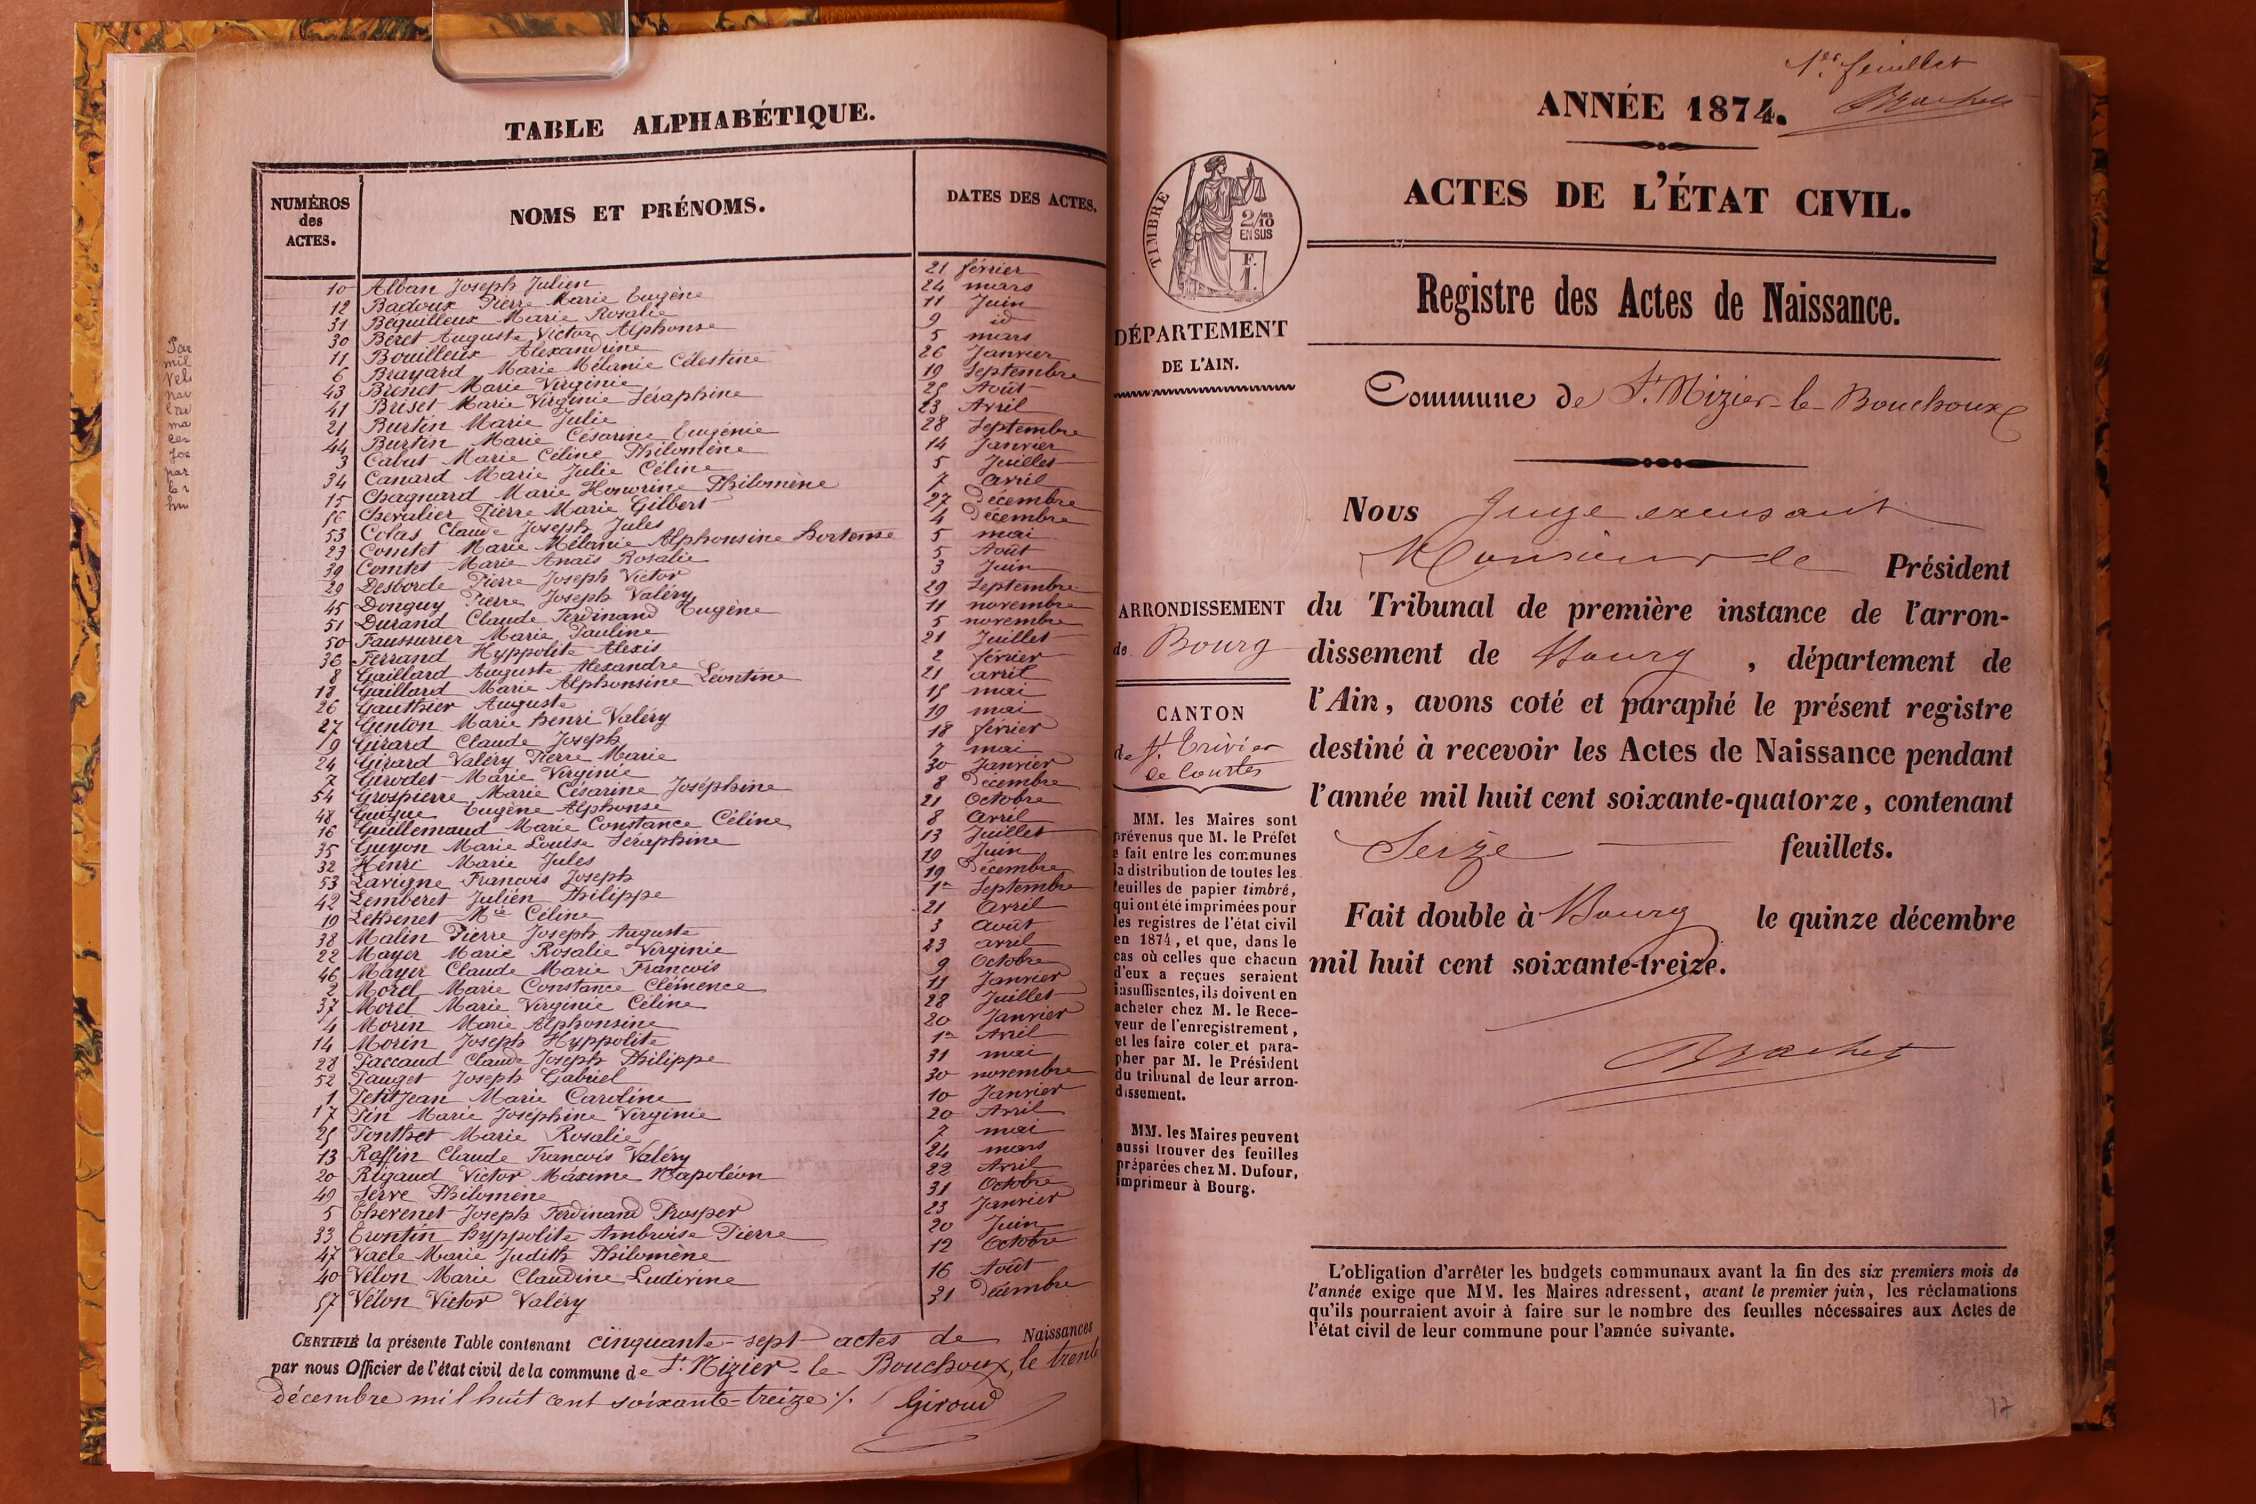 TABLE ALPHABÉTIQUE.
NUMÉROS des ACTES. NOMS ET PRÉNOMS. DATES DES ACTES.
10 Alban Joseph Julien 21 février
12 Badoux Pierre Marie Eugène 24 mars
31 Béquilleux Marie Rosalie 11 Juin
30 Béret Auguste Victor Alphonse 9 id
11 Bouilleux Alexandrine 5 mars
6 Brayard Marie Mélanie Célestine 26 Janvier
43 Brenet Marie Virginie 19 Septembre
41 Briset Marie Virginie Séraphine 25 Août
21 Burtin Marie Julie 23 Avril
44 Burtin Marie Césarine Eugénie 28 Septembre
3 Cabut Marie Céline Philomène 14 Janvier
34 Canard Marie Julie Céline 5 Juillet
15 Chagnard Marie Honorine Philomène 7 Avril
56 Chevalier Pierre Marie Gilbert 27 Décembre
53 Colas Claude Joseph Jules 4 Décembre
23 Comtet Marie Mélanie Alphonsine Hortense 5 mai
39 Comtet Marie Anaïs Rosalie 5 Août
29 Desborde Pierre Joseph Victor 3 Juin
45 Donguy Pierre Joseph Valéry 29 Septembre
51 Durand Claude Ferdinand Eugène 11 novembre
50 Faussurier Marie Pauline 5 novembre
36 Ferrand Hyppolite Alexis 21 Juillet
8 Gaillard Auguste Alexandre 2 février
18 Gaillard Marie Alphonsine Léontine 21 avril
26 Gauthier Auguste 15 mai
27 Genton Marie henri Valéry 19 mai
9 Girard Claude Joseph 18 février
24 Girard Valéry Pierre Marie 7 mai
7 Girodet Marie Virginie 30 Janvier
54 Grospierre Marie Césarine Joséphine 8 Décembre
48 Guigue Eugène Alphonse 21 Octobre
16 Guillemaud Marie Constance Céline 8 Avril
35 Guyon Marie Louise Séraphine 13 Juillet
32 Henri Marie Jules 19 Juin
53 Lavigne François Joseph 19 Décembre
42 Lemberet Julien Philippe 1er Septembre
19 Lethenet Mie Céline 21 Avril
38 Malin Pierre Joseph Auguste 3 Août
22 Mayer Marie Rosalie Virginie 23 avril
46 Mayer Claude Marie François 9 Octobre
2 Morel Marie Constance Clémence 11 Janvier
37 Morel Marie Virginie Céline 28 Juillet
4 Morin Marie Alphonsine 20 Janvier
14 Morin Joseph Hyppolite 1er Avril
28 Paccaud Claude Joseph Philippe 31 mai
52 Pauget Joseph Gabriel 30 novembre
1 Petitjean Marie Caroline 10 Janvier
17 Pin Marie Joséphine Virginie 20 Avril
25 Ponthet Marie Rosalie 7 mai
13 Raffin Claude François Valéry 24 mars
20 Rigaud Victor Maxime Napoléon 22 Avril
49 Serve Philomène 31 Octobre
5 Thevenet Joseph Ferdinand Prosper 23 Janvier
33 Trontin hyppolite Ambroise Pierre 20 Juin
47 Vacle Marie Judith Philomène 12 Octobre
40 Vélon Marie Claudine Ludivine 16 Août
57 Vélon Victor Valéry 31 Décembre
CERTIFIÉ la présente Table contenant cinquante-sept actes de Naissances
par nous Officier de l'état civil de la commune de St Nizier-le-Bouchoux, le trente
décembre mil huit cent soixante-treize ./.
Giroud
1er feuillet
Brachet
ANNÉE 1874.
ACTES DE L'ÉTAT CIVIL.
Registre des Actes de Naissance.
TIMBRE
2/10
EN SUS
F.
1.
DÉPARTEMENT
DE L'AIN.
ARRONDISSEMENT
de Bourg
CANTON
de St Trivier
de Courtes
MM. les Maires sont
prévenus que M. le Préfet
e fait entre les communes
la distribution de toutes les
feuilles de papier timbré,
qui ont été imprimées pour
les registres de l'état civil
en 1874, et que, dans le
cas où celles que chacun
d'eux a reçues seraient
insuffisantes, ils doivent en
acheter chez M. le Rece-
veur de l'enregistrement,
et les faire coter et para-
pher par M. le Président
du tribunal de leur arron-
dissement.
MM. les Maires peuvent
aussi trouver des feuilles
préparées chez M. Dufour,
imprimeur à Bourg.
Commune de St Nizier-le-Bouchoux
Nous Juge excusant
Monsieur le Président
du Tribunal de première instance de l'arron-
dissement de Bourg, département de
l'Ain, avons coté et paraphé le présent registre
destiné à recevoir les Actes de Naissance pendant
l'année mil huit cent soixante-quatorze, contenant
Seize feuillets.
Fait double à Bourg le quinze décembre
mil huit cent soixante-treize.
Brachet
L'obligation d'arrêter les budgets communaux avant la fin des six premiers mois de
l'année exige que MM. les Maires adressent, avant le premier juin, les réclamations
qu'ils pourraient avoir à faire sur le nombre des feuilles nécessaires aux Actes de
l'état civil de leur commune pour l'année suivante.
17